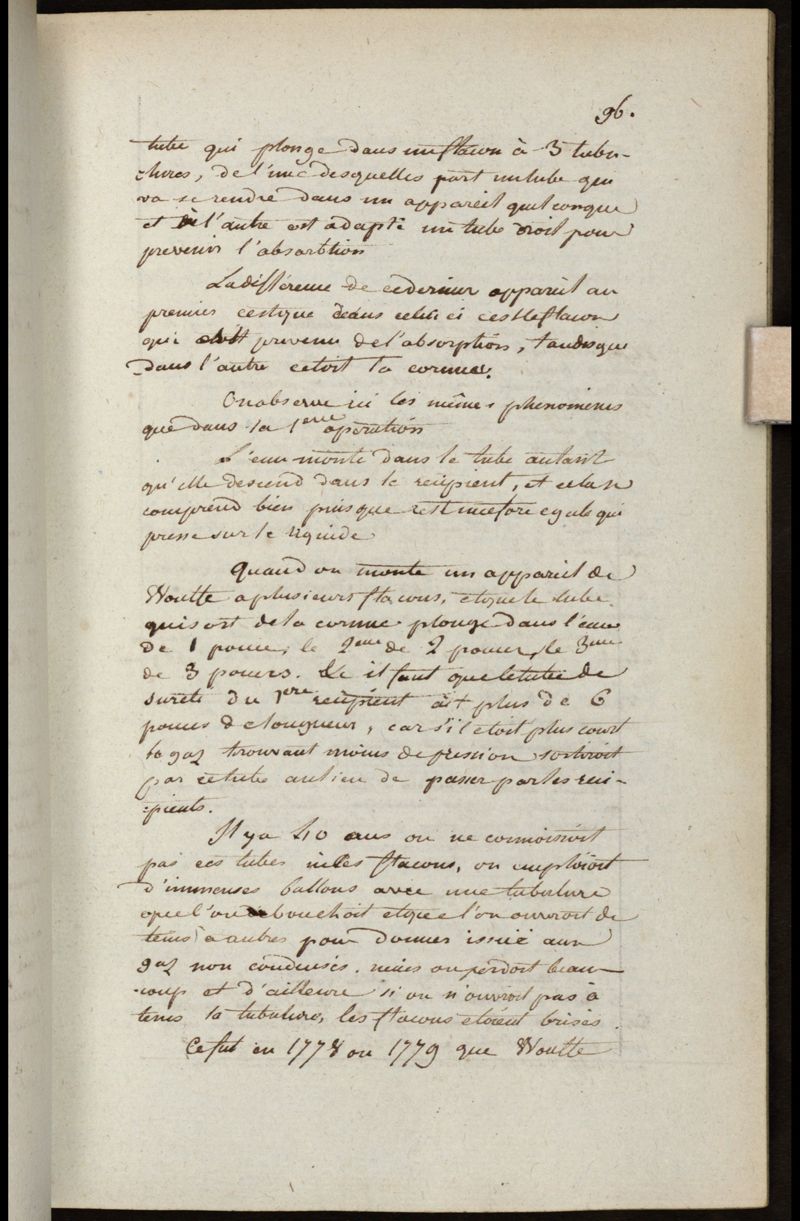 96.
tube qui plonge dans un flacon à 3 tubu-
-lures, de l'une desquelles part un tube qui
va se rendre dans un appareil quelconque
et à l'autre est adapté un tube droit pour
prevenir l'absorbtion
La différence de ce dernier appareil au
premier c'est que dans celui ci c'est le flacon
qui est prevenu de l'absorption, tandis que
dans l'autre c'etoit la cornue.
On observe ici les mêmes phenomènes
que dans la 1ere operation
L'eau monte dans le tube autant
qu'elle descend dans le recipient, et cela se
comprend bien puisque c'est une force egale qui
presse sur le liquide
Quand on monte un appareil de
Woulfe a plusieurs flacons, et que le tube
qui sort de la cornue plonge dans l'eau
de 1 pouce, le 2me de 2 pouces, le 3me
de 3 pouces. il faut que le tube de
sureté du 1ere recipient ait plus de 6
pouces de longueur, car s'il etoit plus court
le gaz trouvant moins de pression sortiroit
par ce tube au lieu de passer par les reci-
-pients.
Il y a 40 ans on ne connoissoit
pas ces tubes ni les flacons, on emploioit
d'immenses ballons avec une tubulure
que l'on bouchoit et que l'on ouvroit de
tems à autres pour donner issuë aux
gaz non condensés. mais on perdoit beau-
-coup et d'ailleurs si on n'ouvroit pas à
tems la tubulure, les flacons etoient brisés.
Ce fut en 1778 ou 1779 que Woulfe